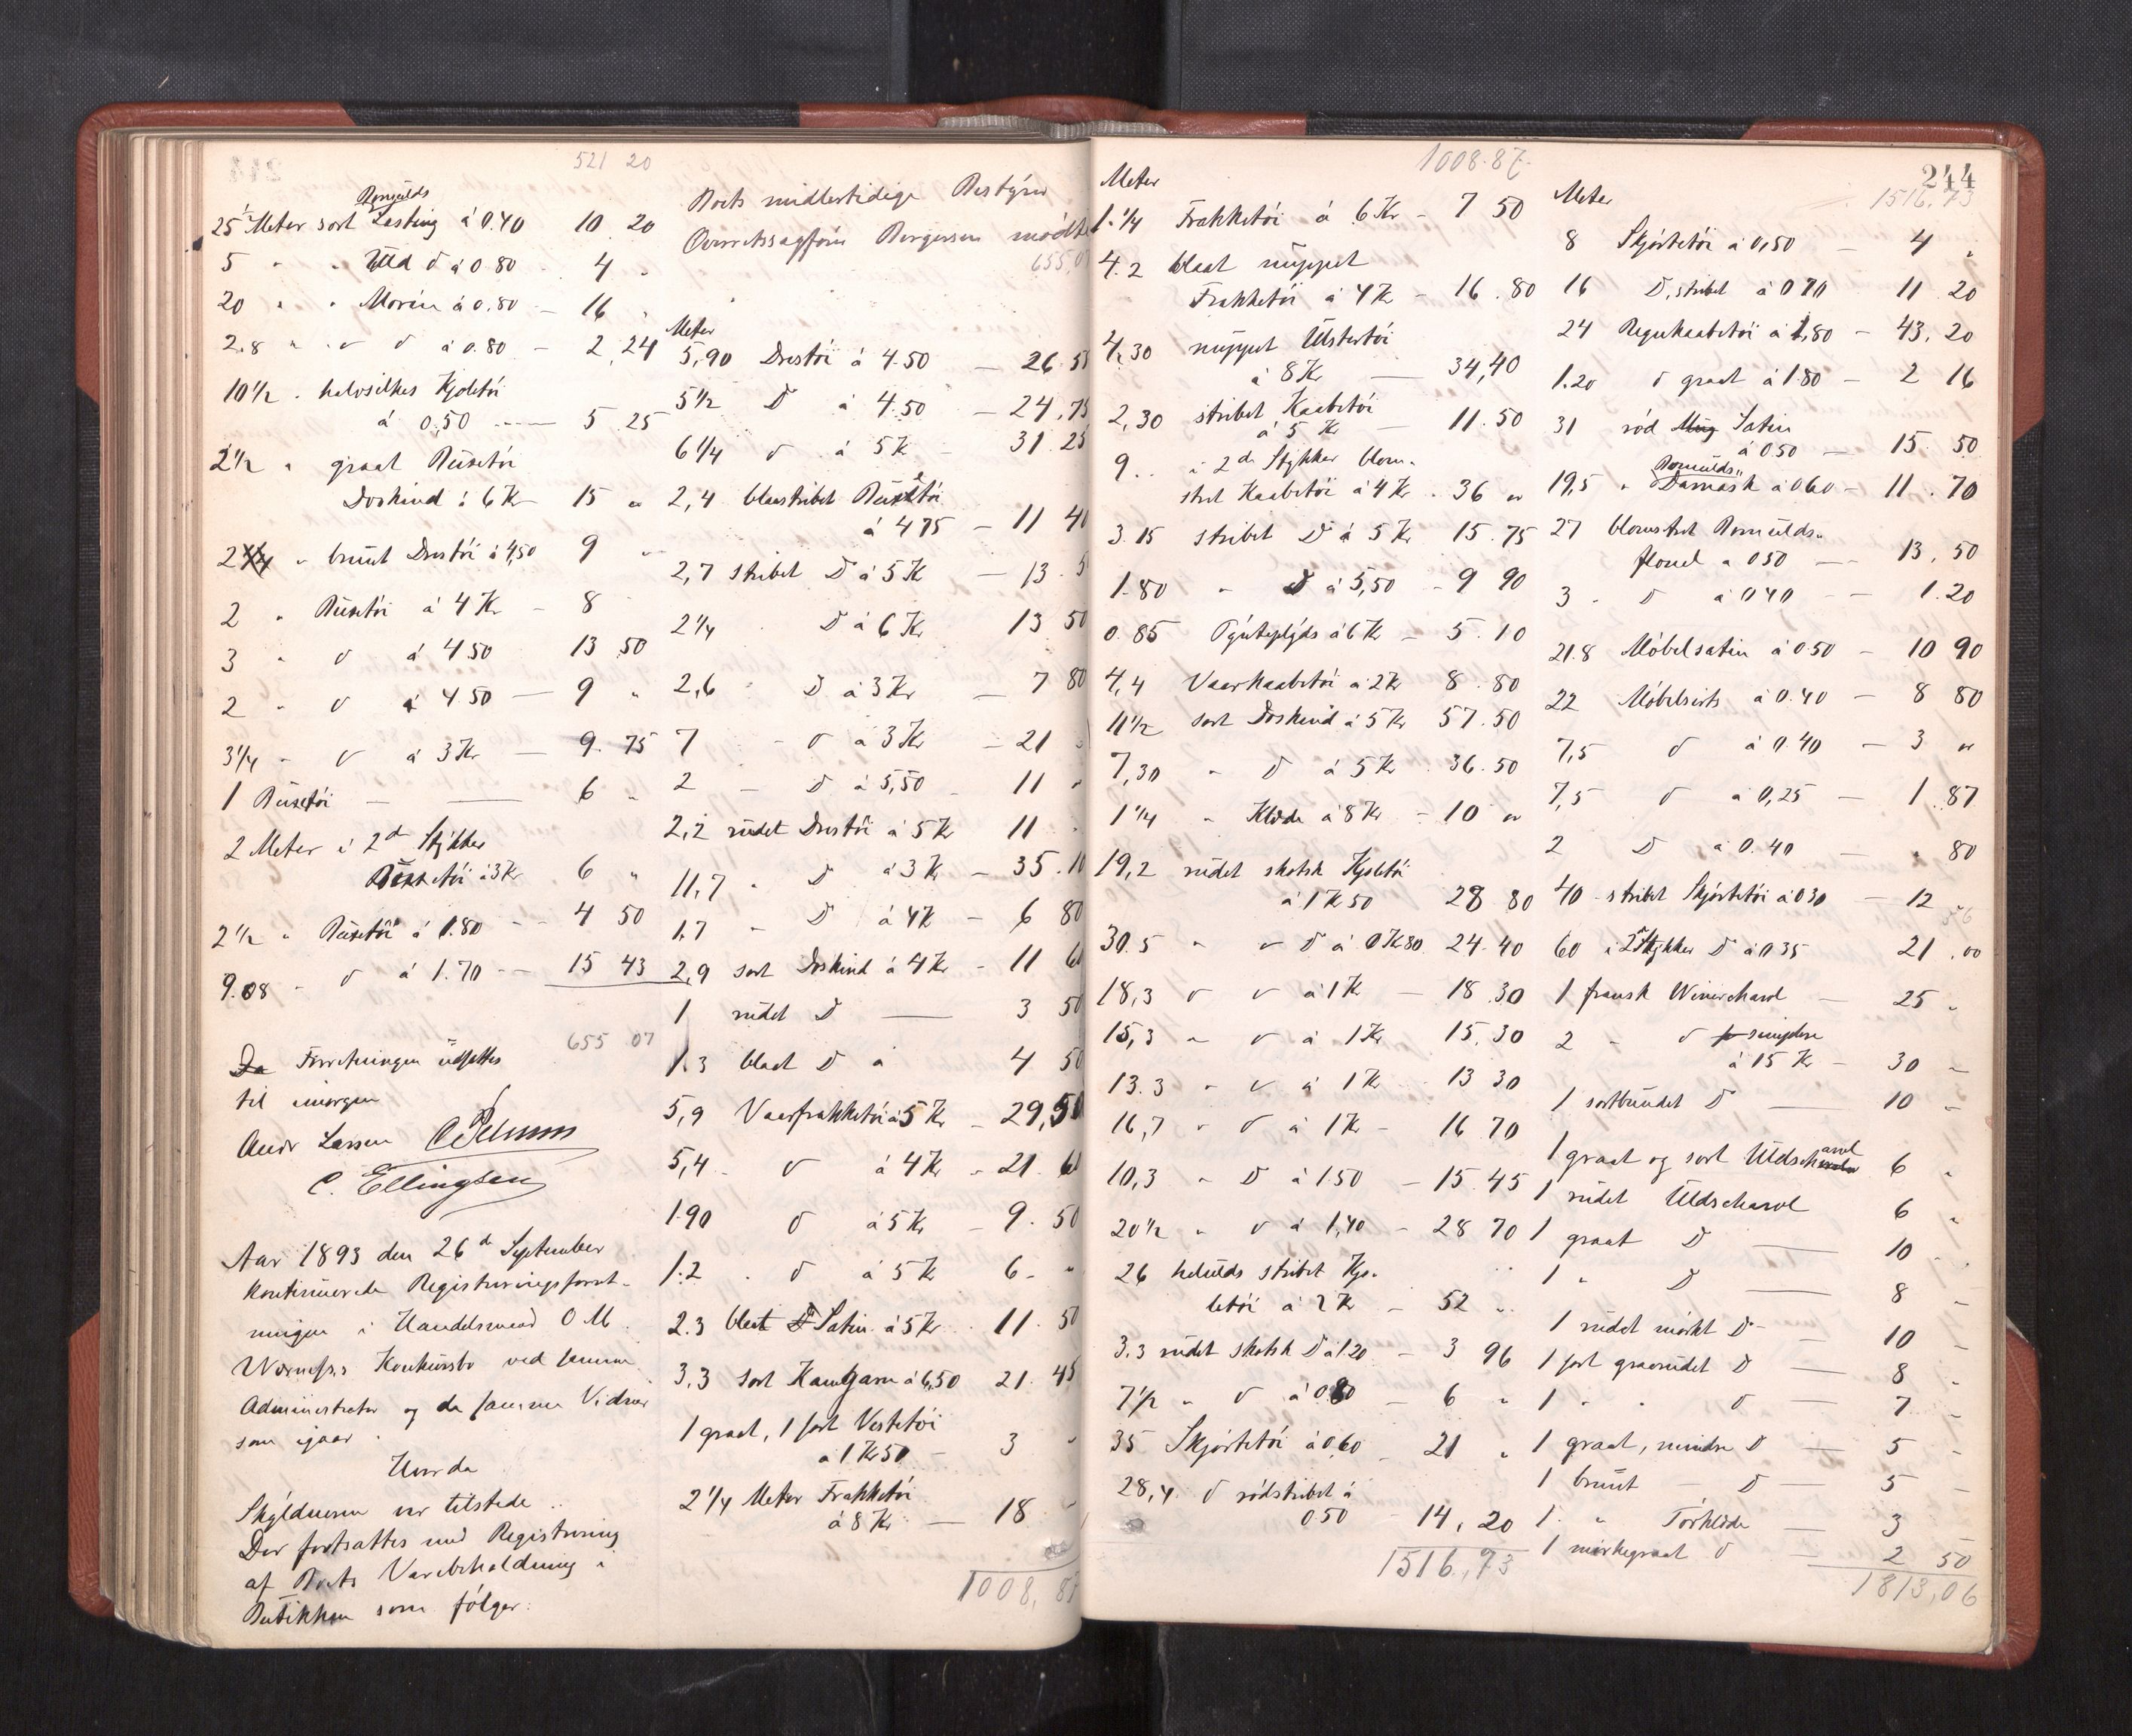 521 20
Bomulds
25½ Meter sort Lasting á 0.40 10 20
5 " " Uld do á 0 80 - 4 "
20 " " Morin á 0.80 - 16 "
2.8 " " " do á 0.80 - 2 24
10½ " halvsilkes Kjoletöi
á 0,50 ---- 5 25
2½ " graat Buxetöi
Doskind á 6 Kr 15 "
2 " brunt Drestöi á 4,50 9 "
2 " Buxetöi á 4 Kr - 8
3 " do á 4 50 13 50
2 " do á 4 50 - 9 "
3¼ " do á 3 Kr - 9. 75
1 Buxetöi - 6 "
2 Meter i 2de Stykker
Buxetöi á 3 Kr 6 "
2½ " Buxetöi á 1.80 - 4 50
9.08 " do á 1.70 -- 15 43
655 07
Da Forretningen udsattes
til imorgen
Andr Larsen
C. Ellingsen
Aar 1893 den 26de September
kontinuerede Registreringsforret-
ningen i Handelsmand O M
Konkursbo ved samme
Administrator og de samme Vidner
som igaar.
Hvorda
Skyldneren var tilstede ..
Der fortsattes med Registrering
af Boets Varebeholdning i
Butikken som fölger:
Boets midlertidige Bestyrer
Overretssagförer Borgersen mödte
655,0
Meter
5,90 Drestöi á 4.50 - 26.55
5½ do á 4.50 - 24,75
6¼ do á 5 K - 31 25
2,4 blaastribet Buxetöi
á 4 75 - 11 40
2,7 stribet do á 5 K - 13.5
2¼ do á 6 Kr 13 50
2,6 " do á 3 Kr - 7 80
7 - do á 3 Kr - 21
2 - do á 5,50 - 11 "
2,2 rudet Drestöi á 5 Kr 11 "
11,7 " do á 3 K - 35.10
1,7 " do á 4 K - 6 80
2,9 sort Doskind á 4 Kr - 11 60
1 rudet do - 3 50
1.3 blaat do á 4 50
5,9 Vaarfrakketöi á 5 Kr - 29,50
5,4 - do á 4 Kr - 21.60
1.90 do á 5 Kr - 9. 50
1.2 . do á 5 K 6 - "
2.3 blaat Satin á 5 Kr . 11. 50
3.3 sort Kamgarn á 6,50 21. 45
1 graat, 1 sort Vestetöi
á 1 Kr 50 - 3 "
2¼ Meter Frakketöi
á 8 Kr - 18 -
1008,87
1008.87
Meter
1.¼ Frakketöi á 6 Kr - 7 50
4.2 blaat nuppet
Frakketöi á 4 Kr - 16.80
4,30 nuppet Ulstertöi
á 8 Kr - 34,40
2,30 stribet Kaabetöi
á 5 Kr - 11.50
9.. i 2de Stykker blom-
stret Kaabetöi á 4 Kr . 36 "
3.15 stribet do á 5 Kr 15.75
1.80 " do á 5,50 - 9 90
0.85 á 6 Kr - 5.10
4,4 Vaarkaabetöi á 2 Kr 8.80
11½ sort Doskind á 5 Kr 57.50
7,30 " do á 5 Kr . 36.50
1¼ " Klæde á 8 Kr - 10 "
19,2 rudet skotsk Kjoletöi
á 1 K 50 28 80
30.5 " " do á 0 K 80 24.40
18,3 " " á 1 K - 18.30
15,3 " do á 1 Kr 15.30
13.3 " " á 1 K 13 30
16,7 " do á 1 Kr - 16 70
10,3 " do á 1.50 - 15 45
20½ " do á 1,40 - 28 70
26 heluds stribet Kjo-
letöi á 2 K - 52 "
3.3 rudet skotsk do á 1.20 - 3 96
7½ " do á 0.80 - 6 "
35 Skjörtetöi á 0.60 - 21 "
28,4 do rödstribet á
0.50 - 14, 20
1516,73
244
1516,73
Meter
8 Skjörtetöi á 0,50 - 4 "
16 do, stribet á 0 70 11 20
24 Regnkaabetöi á 1,80 - 43, 20
1.20 do graat á 1.80 - 2 16
31 röd Satin
á 0.50 - 15. 50
Bomulds
19,5 " Damask á 0 60 - 11.70
27 blomstret Bomulds-
flonel á 0 50 -- 13, 50
3 " do á 0 40 - 1.20
21.8 Möbelsatin á 0.50 - 10 90
22 Möbelsirts á 0.40 - 8 80
7,5 do á 0.40 - 3 "
7,5 do á 0,25 - 1.87
2 do á 0.40 - " 80
40 - stribet Skjörtetöi á 0 30 - 12
60 i 2 Stykker do á 0 35 21.00
1 fransk Wienerchavl - 25 "
2 " do simplere
á 15 K - 30 "
1 sortbundet do - 10 "
1 graat og sort Uldschavl 6 "
1 rudet Uldschavl 6 "
1 graat do - 10
1 " do - 8 "
1 rudet mörkt do - 10
1 sort graarudet do - 8 "
1 " " do - 7 "
1 graat, mindre do - 5 "
1 brunt - do - 5 "
1 " Törklæde - 3
1 mörkegraat do - 2 50
1813,06